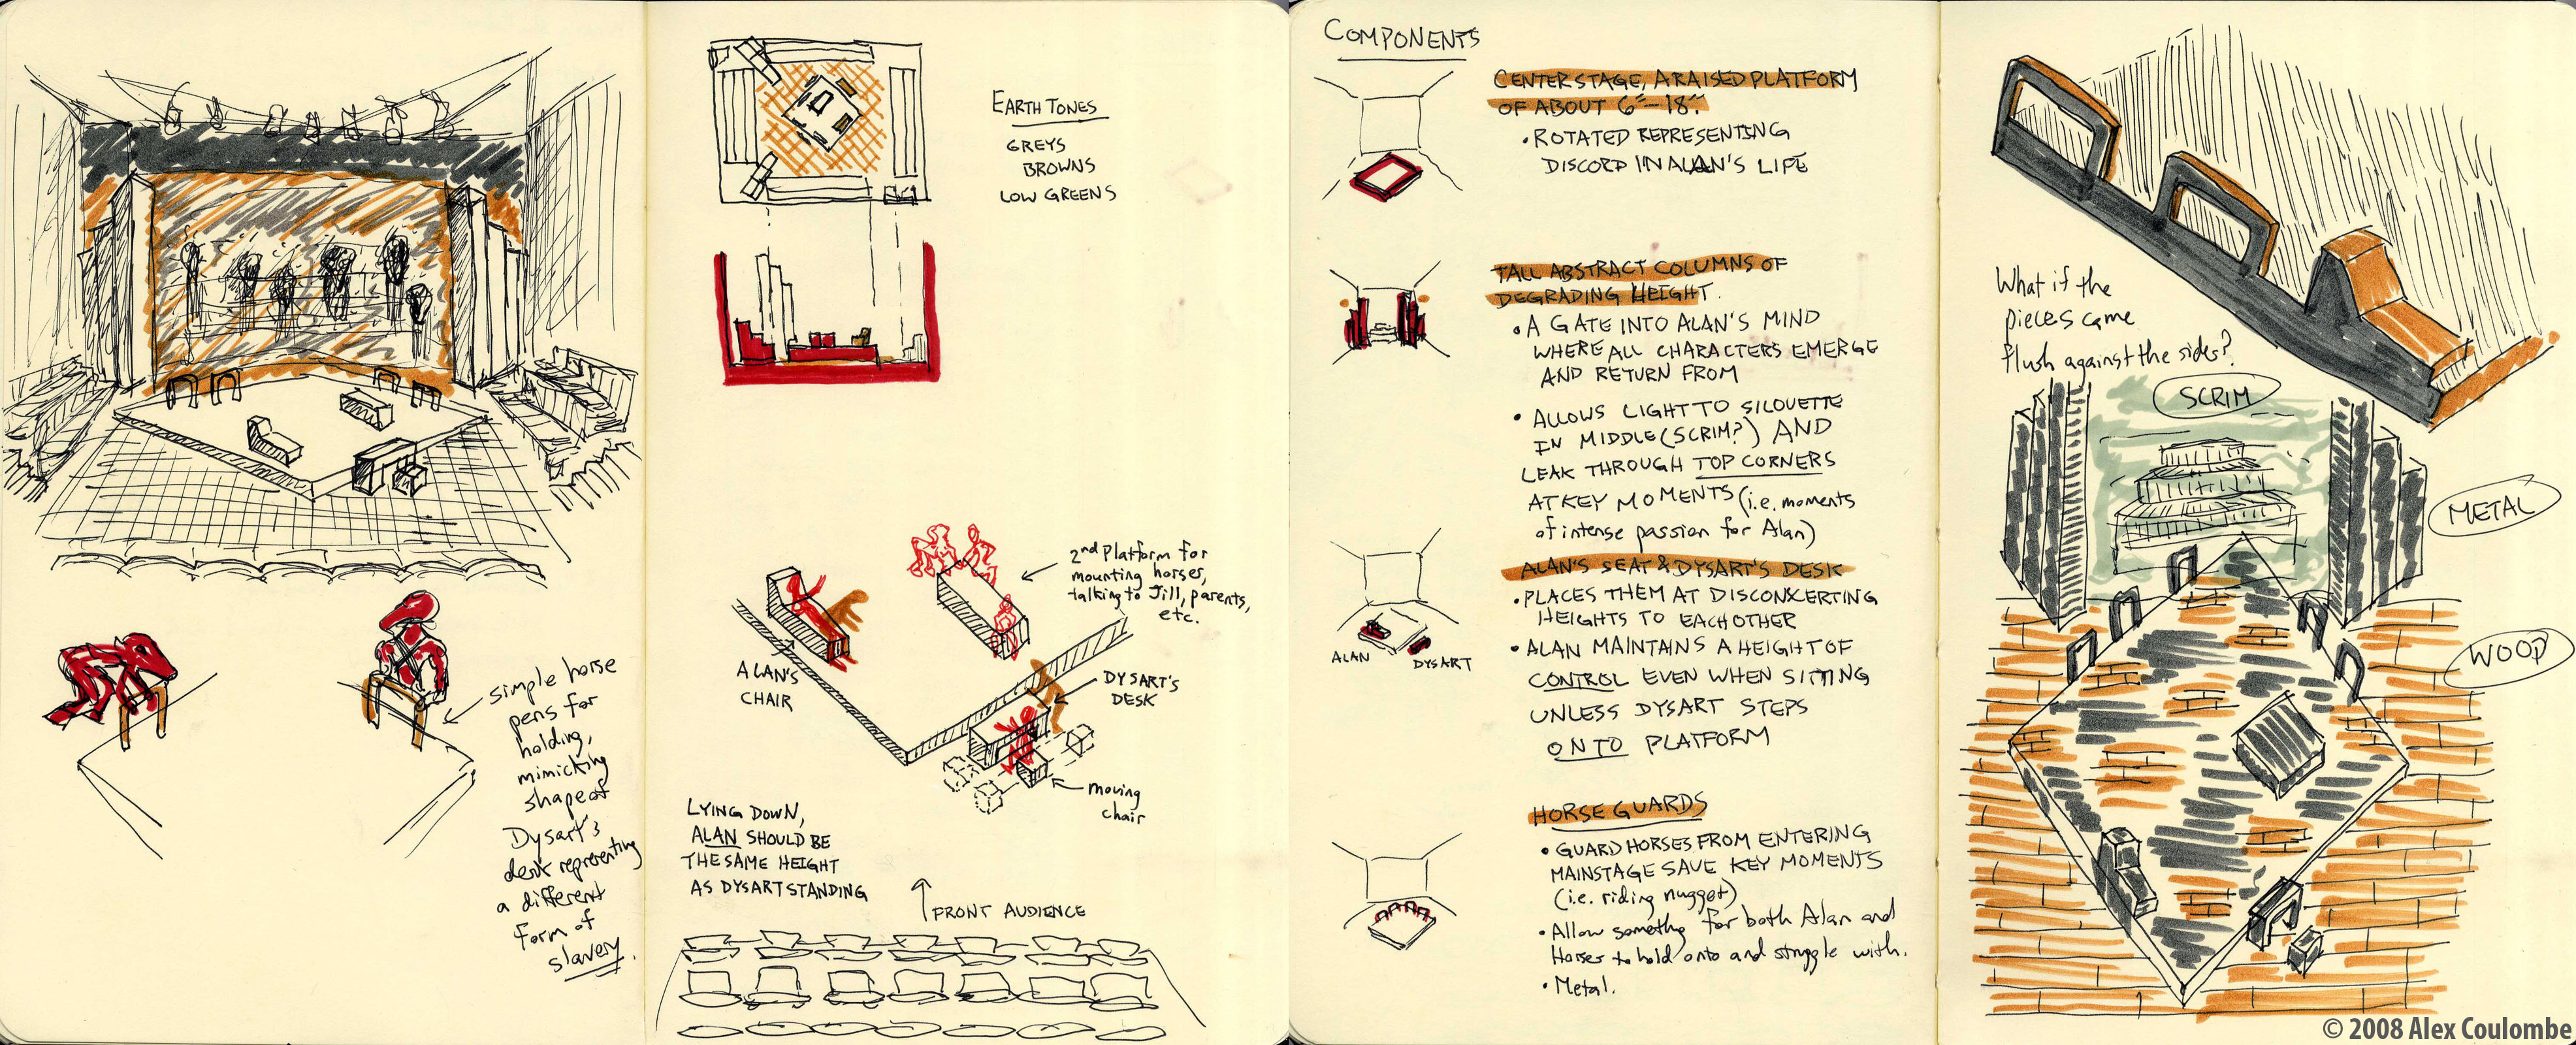 simple horse
pens for
holding,
mimicking
shape of
Dysart's
desk representing
a different
form of
slavery.
EARTH TONES
GREYS
BROWNS
LOW GREENS
2nd platform for
mounting horses,
talking to Jill, parents,
etc.
ALAN'S
CHAIR
DYSART'S
DESK
moving
chair
LYING DOWN,
ALAN SHOULD BE
THE SAME HEIGHT
AS DYSART STANDING
FRONT AUDIENCE
COMPONENTS
CENTER STAGE, A RAISED PLATFORM
OF ABOUT 6"-18".
• ROTATED REPRESENTING
DISCORD IN ALAN'S LIFE
TALL ABSTRACT COLUMNS OF
DEGRADING HEIGHT.
• A GATE INTO ALAN'S MIND
WHERE ALL CHARACTERS EMERGE
AND RETURN FROM
• ALLOWS LIGHT TO SILOUETTE
IN MIDDLE (SCRIM?) AND
LEAK THROUGH TOP CORNERS
AT KEY MOMENTS (i.e. moments
of intense passion for Alan)
ALAN'S SEAT & DYSART'S DESK
• PLACES THEM AT DISCONCERTING
HEIGHTS TO EACH OTHER
• ALAN MAINTAINS A HEIGHT OF
CONTROL EVEN WHEN SITTING
UNLESS DYSART STEPS
ONTO PLATFORM
ALAN
DYSART
HORSE GUARDS
• GUARD HORSES FROM ENTERING
MAINSTAGE SAVE KEY MOMENTS
(i.e. riding nugget)
• Allow something for both Alan and
Horses to hold onto and struggle with.
• Metal.
What if the
pieces came
flush against the sides?
SCRIM
METAL
WOOD
© 2008 Alex Coulombe